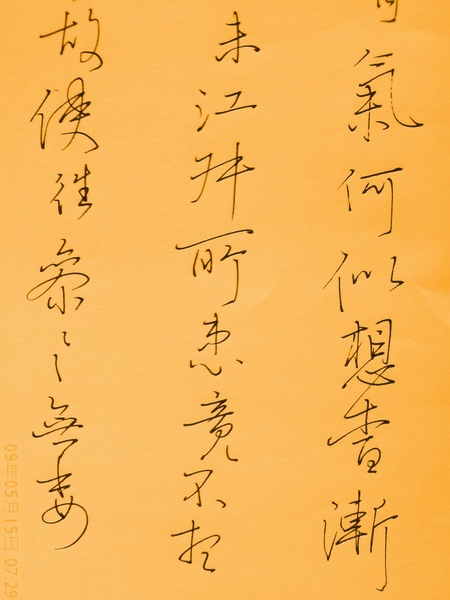 氣何似想漸
未江所患竟不
故使往參之無
09年05月15日 07:29